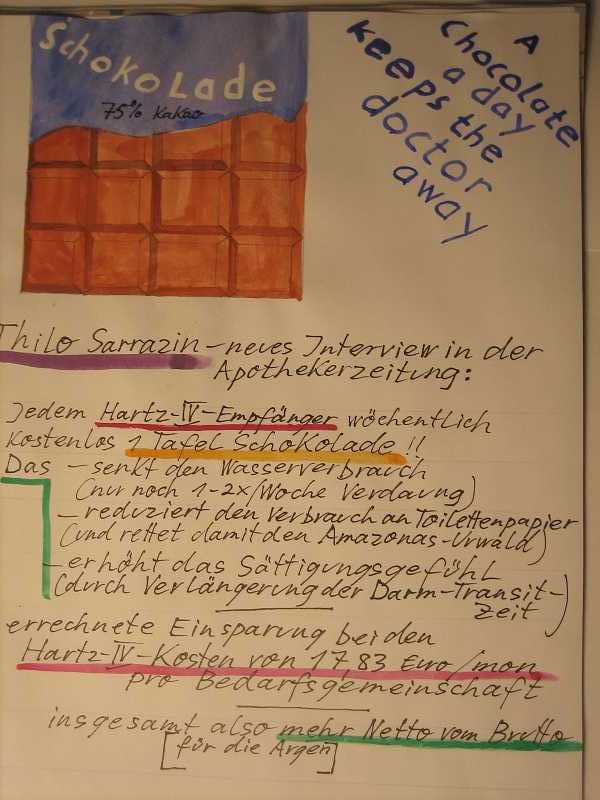 Schokolade
75% Kakao
A
Chocolate
a day
keeps the
doctor
away
Thilo Sarrazin – neues Interview in der
Apothekerzeitung:
Jedem Hartz-IV-Empfänger wöchentlich
kostenlos 1 Tafel Schokolade!!
Das – senkt den Wasserverbrauch
(nur noch 1-2x/Woche Verdauung)
– reduziert den Verbrauch an Toilettenpapier
(und rettet damit den Amazonas-Urwald)
– erhöht das Sättigungsgefühl
(durch Verlängerung der Darm-Transit-
zeit)
errechnete Einsparung bei den
Hartz-IV-Kosten von 17,83 Euro/mon
pro Bedarfsgemeinschaft
insgesamt also mehr Netto vom Brutto
[für die Argen]